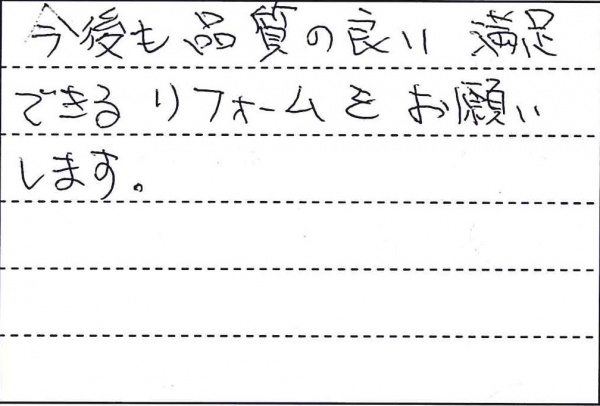 今後も品質の良い 満足
できる リフォームを お願い
します。